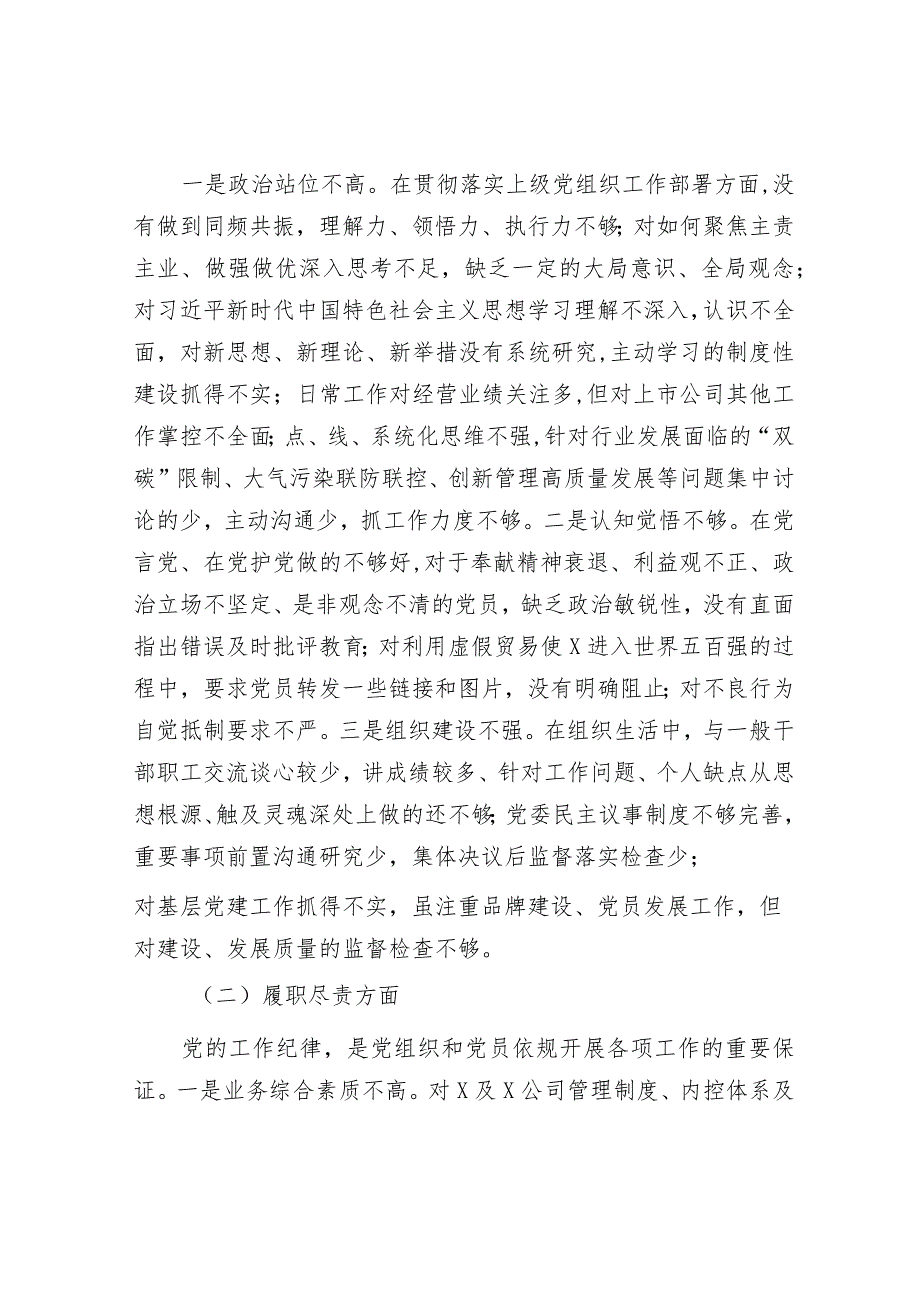 一是政治站位不高。在贯彻落实上级党组织工作部署方面,没
有做到同频共振，理解力、领悟力、执行力不够；对如何聚焦主责
主业、做强做优深入思考不足，缺乏一定的大局意识、全局观念；
对习近平新时代中国特色社会主义思想学习理解不深入,认识不全
面，对新思想、新理论、新举措没有系统研究,主动学习的制度性
建设抓得不实；日常工作对经营业绩关注多,但对上市公司其他工
作掌控不全面；点、线、系统化思维不强,针对行业发展面临的“双
碳”限制、大气污染联防联控、创新管理高质量发展等问题集中讨
论的少，主动沟通少，抓工作力度不够。二是认知觉悟不够。在党
言党、在党护党做的不够好,对于奉献精神衰退、利益观不正、政
治立场不坚定、是非观念不清的党员，缺乏政治敏锐性，没有直面
指出错误及时批评教育；对利用虚假贸易使X进入世界五百强的过
程中，要求党员转发一些链接和图片，没有明确阻止；对不良行为
自觉抵制要求不严。三是组织建设不强。在组织生活中，与一般干
部职工交流谈心较少，讲成绩较多、针对工作问题、个人缺点从思
想根源、触及灵魂深处上做的还不够；党委民主议事制度不够完善，
重要事项前置沟通研究少，集体决议后监督落实检查少；
对基层党建工作抓得不实，虽注重品牌建设、党员发展工作，但
对建设、发展质量的监督检查不够。
（二）履职尽责方面
党的工作纪律，是党组织和党员依规开展各项工作的重要保
证。一是业务综合素质不高。对X及X公司管理制度、内控体系及